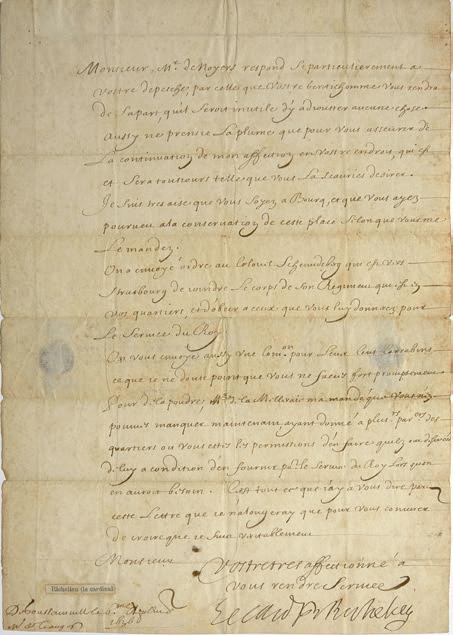 Monsieur, Mr. de Noyers respond sy particulierement a
vostre depesche, par celles que vostre Gentilhomme vous rendra
de sa part, qu'il seroit inutile d'y adjouster aucune chose
Aussy ne prens ie la plume que pour vous asseurer de
la continuation de mon affection en vostre endroit, qui est
et sera tousiours telle que vous la sçauriez desirer.
Je suis tres aise que vous soyez a Bourg, et que vous ayez
pourveu a la conservation de ceste place selon que vous me
le mandez.
On a envoyé ordre au Colonel qui est vers
Strasbourg de joindre le corps de son Regiment qui est en
vos quartiers, et d'obeir a ceux que vous luy donnerez pour
le service du Roy
On vous envoye aussy une Com.on pour lever Cent Carrabins
ce que ie ne doute point que vous ne faciez fort promptement
Pour de la poudre, Mr. de la Milleraie m'a mandé que vous n'en
pouviez manquer maintenant ayant donné a plus.rs par.ers des
quartiers ou vous estes les permissions d'en faire qu'ilz ont
de luy a condition d'en fournir po.r le service du Roy lors qu'on
en auroit besoin. C'est tout ce que j'ay a vous dire par
ceste Lettre que ie n'alongeray que pour vous conjurer
de croire que ie suis veritablement
Monsieur
Vostre tres affectionné a
vous rendre service
Le Card. de Richelieu
Richelieu (le cardinal)